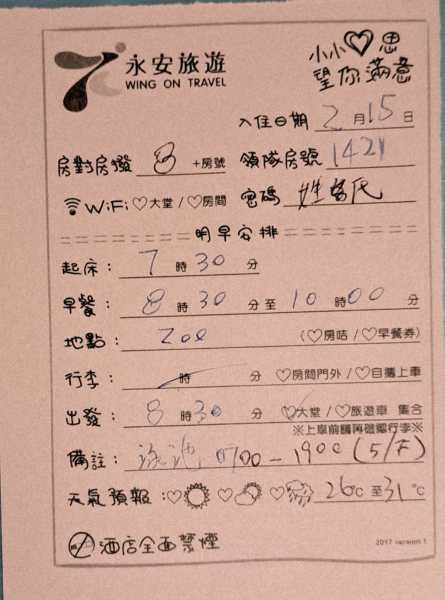 永安旅遊
WING ON TRAVEL
小小♡思
望你滿意
入住日期 2 月 15 日
房對房撥 8 +房號 領隊房號 1421
WiFi ♡大堂 / ♡房間 密碼
明早安排
起床: 7 時 30 分
早餐: 8 時 30 分 至 10 時 00 分
地點: Zoe (♡房咭 / ♡早餐券)
行李: 時 分 ♡房間門外 / ♡自攜上車
出發: 8 時 30 分 ♡大堂 / ♡旅遊車 集合
※上車前請再確認行李※
備註: 泳池 0700 - 1900 (5/F)
天氣預報: ♡ ♡ ♡ 26°C 至 31°C
酒店全面禁煙
2017 version 1